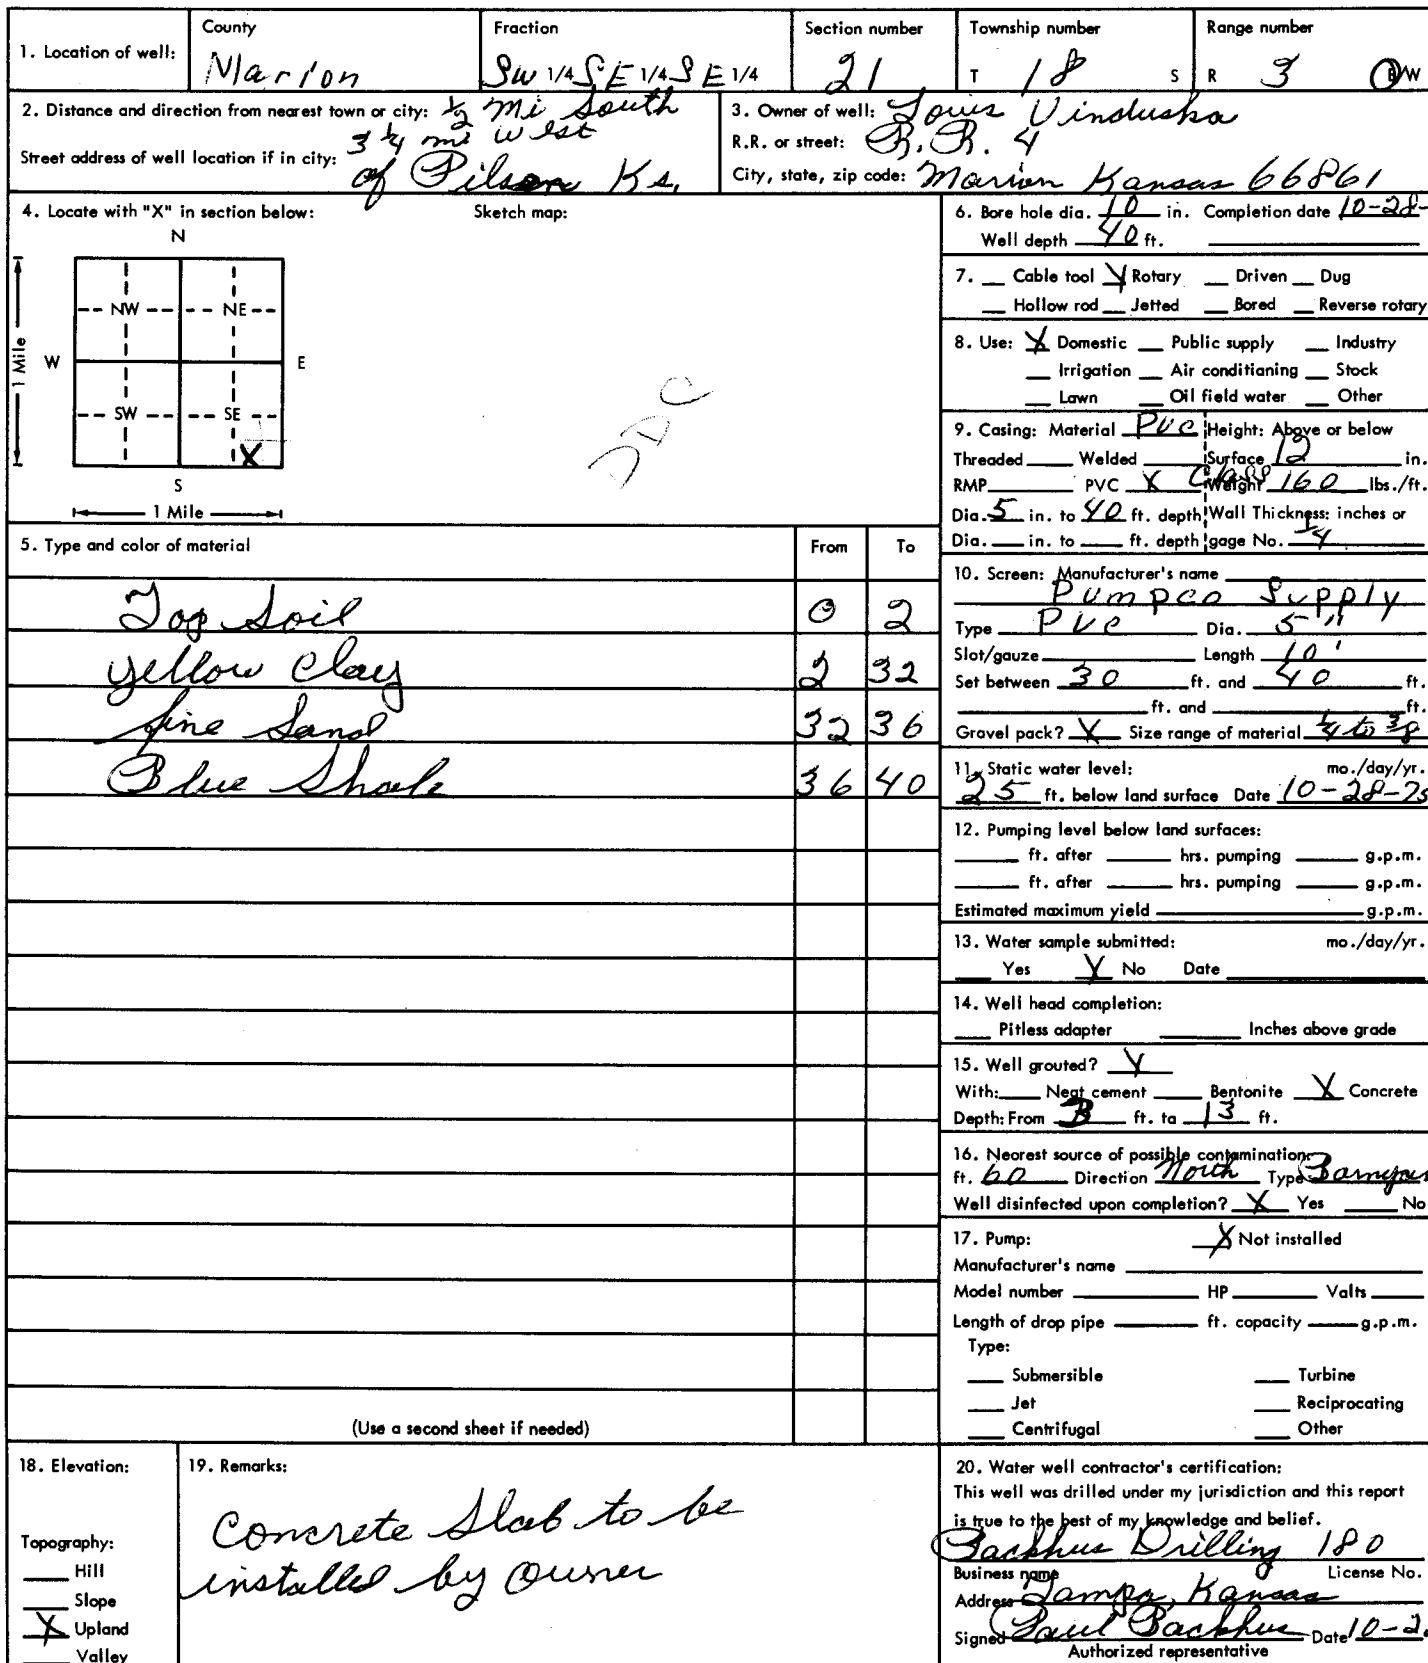 1. Location of well: County Marion Fraction SW 1/4 SE 1/4 SE 1/4 Section number 21 Township number T 18 S Range number R 3 E/W
2. Distance and direction from nearest town or city: 1/2 mi South
3 1/4 mi west
Street address of well location if in city: of Pilsen Ks.
3. Owner of well: Louis Vinduska
R.R. or street: R.R. 4
City, state, zip code: Marion Kansas 66861
4. Locate with "X" in section below: Sketch map:
N
NW NE
W E
1 Mile
SW SE
X
S
1 Mile
DDC
5. Type and color of material From To
Top Soil 0 2
yellow clay 2 32
fine sand 32 36
Blue Shale 36 40
(Use a second sheet if needed)
6. Bore hole dia. 10 in. Completion date 10-28-
Well depth 40 ft.
7. Cable tool X Rotary Driven Dug
Hollow rod Jetted Bored Reverse rotary
8. Use: X Domestic Public supply Industry
Irrigation Air conditioning Stock
Lawn Oil field water Other
9. Casing: Material PVC Height: Above or below
Threaded Welded Surface 12 in.
RMP PVC X Class Weight 160 lbs./ft.
Dia. 5 in. to 40 ft. depth Wall Thickness: inches or
Dia. in. to ft. depth gage No. 1/4
10. Screen: Manufacturer's name
Pumpco Supply
Type PVC Dia. 5"
Slot/gauze Length 10'
Set between 30 ft. and 40 ft.
ft. and ft.
Gravel pack? X Size range of material 1/4 to 3/8
11. Static water level: mo./day/yr.
25 ft. below land surface Date 10-28-75
12. Pumping level below land surfaces:
ft. after hrs. pumping g.p.m.
ft. after hrs. pumping g.p.m.
Estimated maximum yield g.p.m.
13. Water sample submitted: mo./day/yr.
Yes X No Date
14. Well head completion:
Pitless adapter Inches above grade
15. Well grouted? Y
With: Neat cement Bentonite X Concrete
Depth: From 3 ft. to 13 ft.
16. Nearest source of possible contamination:
ft. 60 Direction North Type Barnyar
Well disinfected upon completion? X Yes No
17. Pump: X Not installed
Manufacturer's name
Model number HP Volts
Length of drop pipe ft. capacity g.p.m.
Type:
Submersible Turbine
Jet Reciprocating
Centrifugal Other
18. Elevation:
Topography:
Hill
Slope
X Upland
Valley
19. Remarks:
Concrete slab to be
installed by owner
20. Water well contractor's certification:
This well was drilled under my jurisdiction and this report
is true to the best of my knowledge and belief.
Backhus Drilling 180
Business name License No.
Address Tampa, Kansas
Signed Paul Backhus Date 10-2
Authorized representative